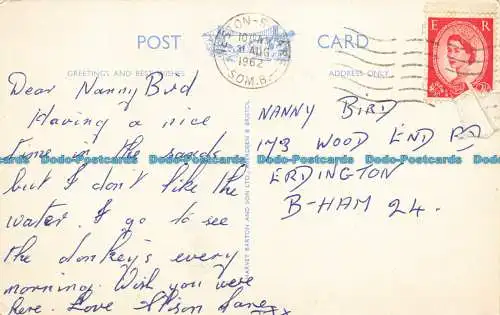 POST CARD
GREETINGS AND BEST WISHES
ADDRESS ONLY
WESTON-S-MARE
31 AUG
1962
SOM.
E R
Dear Nanny Bird
Having a nice
time in the sands
but I don't like the
water. I go to see
the donkey's every
morning. Wish you were
here. Love Alison Jane
xxx
HARVEY BARTON AND SON LTD., PUBLISHERS BRISTOL
NANNY BIRD
173 WOOD END RD
ERDINGTON
B-HAM 24.
Dodo-Postcards Dodo-Postcards Dodo-Postcards Dodo-Postcards Dodo-Postcards